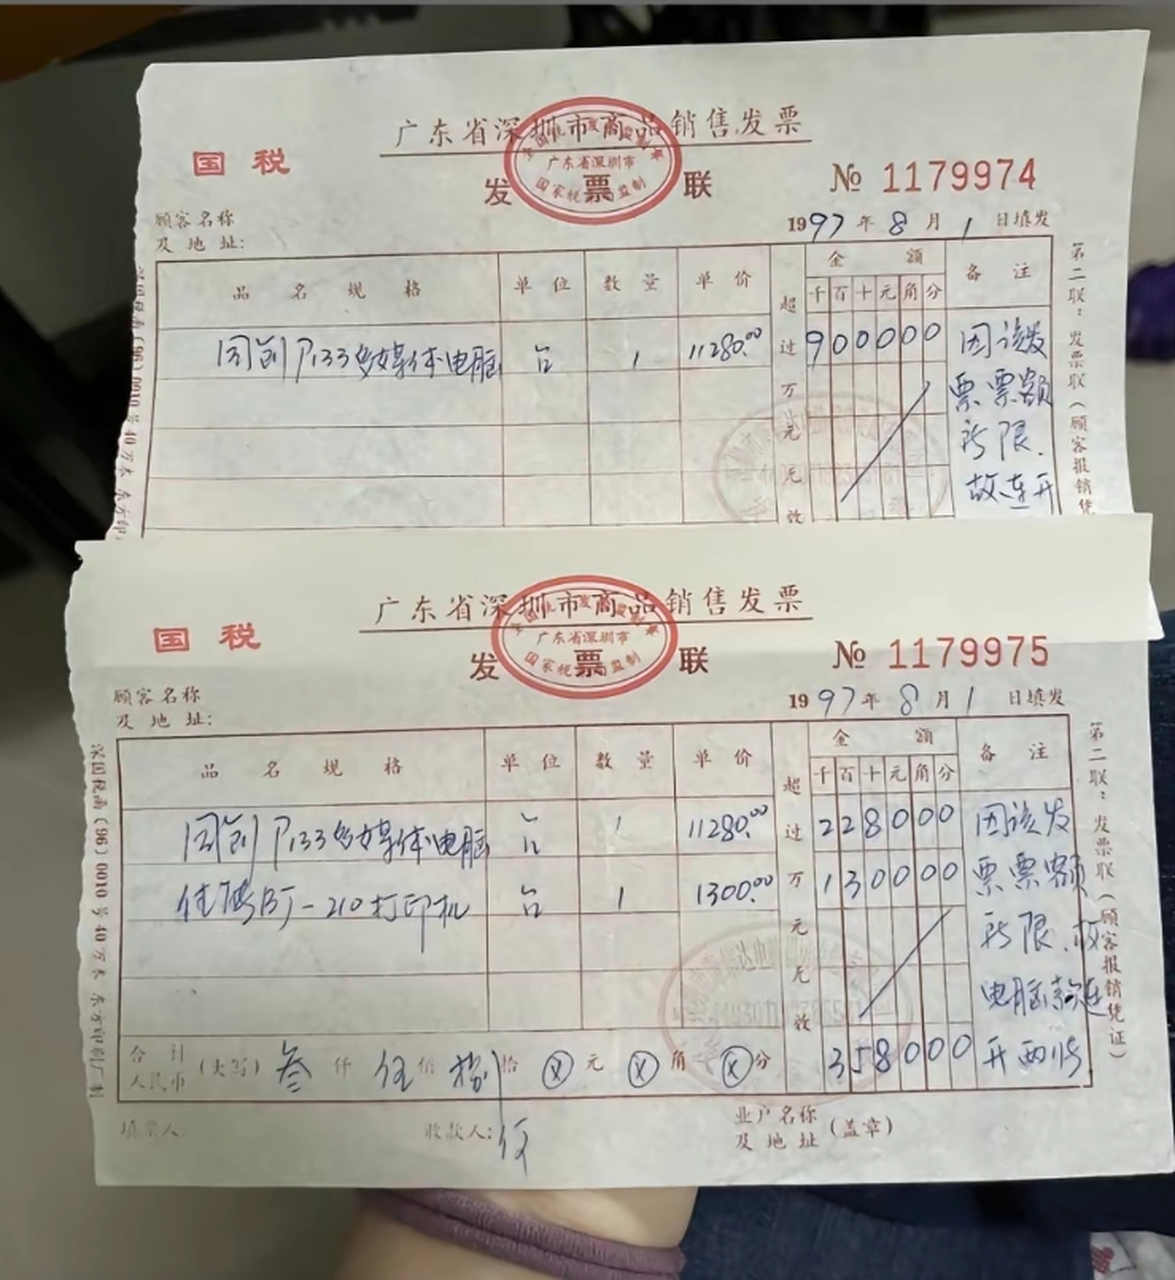 广东省深圳市商品销售发票
国税
发票联
全国统一发票监制章
广东省深圳市
国家税务局监制
№ 1179974
顾客名称
及地址:
1997年8月1日填发
品名规格 单位 数量 单价 超过万元无效 金额 备注
千百十元角分
同创P133多媒体电脑 台 1 11280.00 900000 因该发
票票额
所限.
故连开
深国税函(96)0010号40万本 东方印
第二联:发票联(顾客报销凭
广东省深圳市商品销售发票
国税
发票联
全国统一发票监制章
广东省深圳市
国家税务局监制
№ 1179975
顾客名称
及地址:
1997年8月1日填发
品名规格 单位 数量 单价 超过万元无效 金额 备注
千百十元角分
同创P133多媒体电脑 台 1 11280.00 228000 因该发
佳能BJ-210打印机 台 1 1300.00 130000 票票额
所限.故
电脑款连
合计人民币 (大写) 叁仟伍佰捌拾ⓧ元ⓧ角ⓧ分 358000 开两张
填票人 收款人: 业户名称及地址(盖章)
深国税函(96)0010号40万本 东方印制厂制
第二联:发票联(顾客报销凭证)